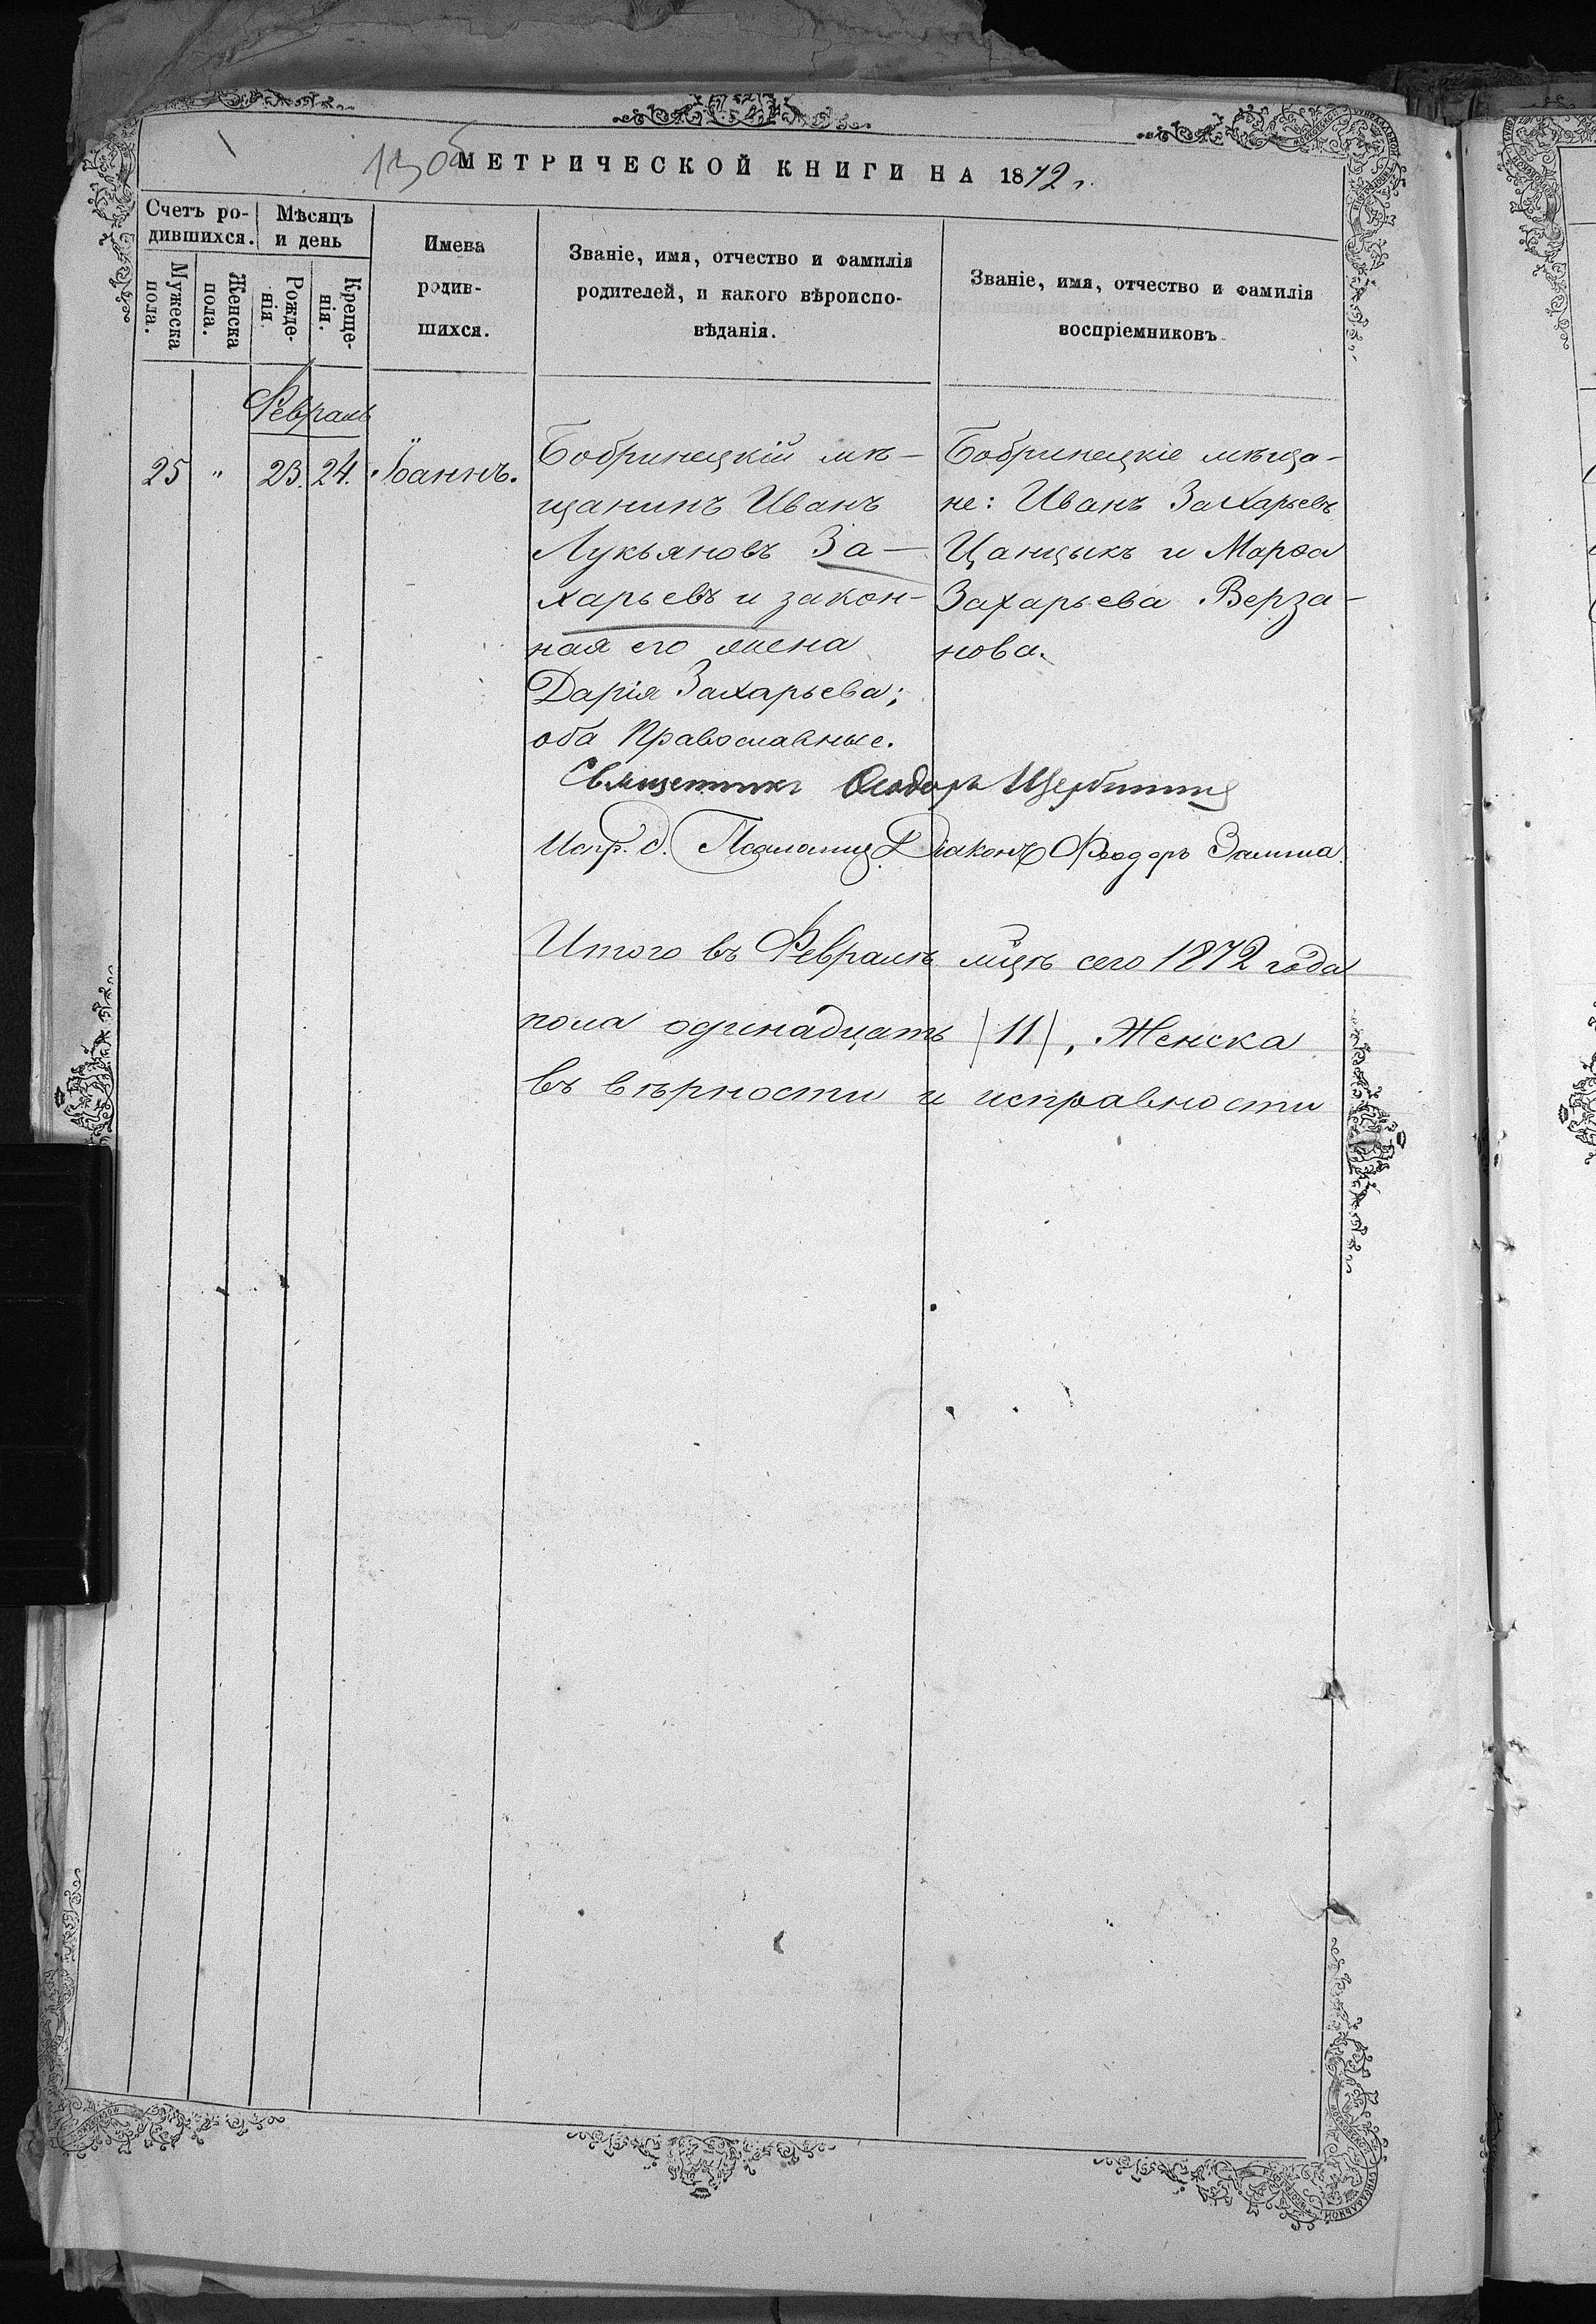 13 об
МЕТРИЧЕСКОЙ КНИГИ НА 1872 г.
Счетъ ро-
дившихся.
Мѣсяцъ
и день
Мужеска
пола.
Женска
пола.
Рожде-
нія.
Креще-
нія.
Имена
родив-
шихся.
Званіе, имя, отчество и фамилія
родителей, и какого вѣроиспо-
вѣданія.
Званіе, имя, отчество и фамилія
воспріемниковъ.
Февраль
25 " 23. 24. Іоаннъ.
Бобринецкій мѣ-
щанинъ Иванъ
Лукьяновъ За-
харьевъ и закон-
ная его жена
Дарія Захарьева;
оба Православные.
Бобринецкіе мѣща-
не: Иванъ Захарьевъ
Цанцыкъ и Марѳа
Захарьева Верза-
нова.
Священникъ Ѳеодоръ Щербинин
Испр. д. Псаломщ. Діаконъ Ѳеодоръ
Итого въ Февралѣ мцѣ сего 1872 года
пола одинадцать /11/, Женска
въ вѣрности и исправности